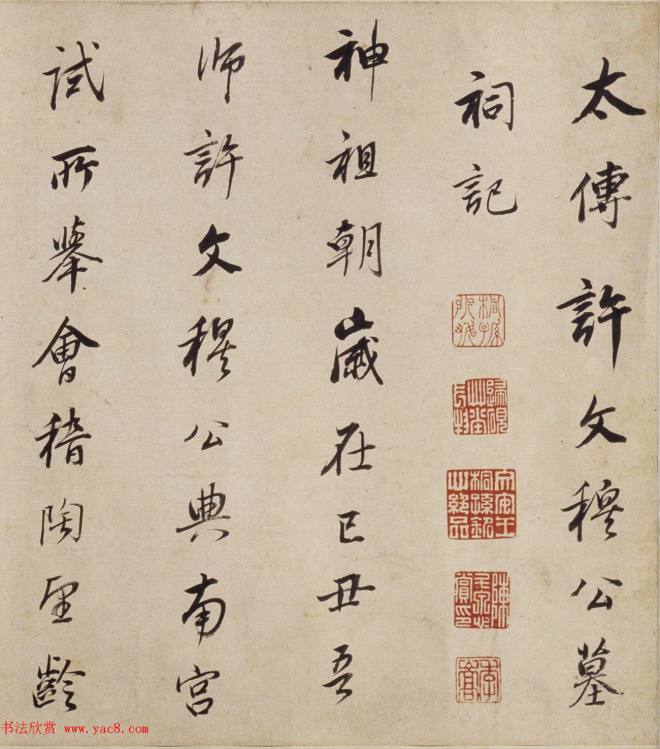 太傅許文穆公墓
祠記
神祖朝歲在己丑吾
師許文穆公典南宮
試所舉會稽陶望齡
书法欣赏 www.yac8.com